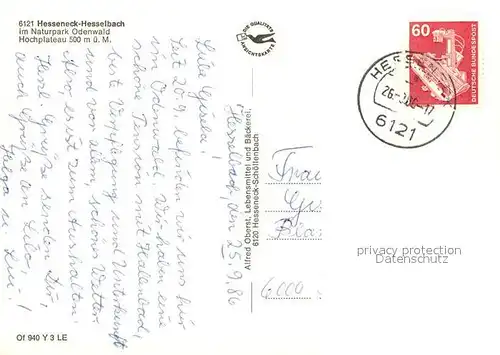 6121 Hesseneck-Hesselbach
im Naturpark Odenwald
Hochplateau 500 m ü. M.
DIE QUALITÄTS
ANSICHTSKARTE
60
DEUTSCHE BUNDESPOST
HESS
26-9.86-17
6121
Hesselbach, den 25.9.86
Liebe Gisela!
Seit 20.9. befinden wir uns hier
im Odenwald. Wir haben eine
schöne Pension mit Hallenbad,
beste Verpflegung und Unterkunft
und vor allem, schönes Wetter.
Also erst zum Aushalten.
Herzl. Grüße senden Dir,
auch Grüße an Lilo,
Helga u.
Alfred Oberst, Lebensmittel und Bäckerei,
6120 Hesseneck-Schöllenbach
Frau
6000
privacy protection
Datenschutz
Of 940 Y 3 LE